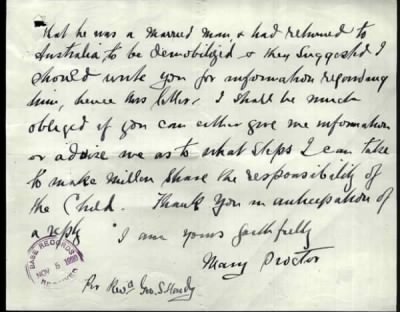 that he was a Married Man & had returned to
Australia to be demobilized & they suggested I
should write you for information regarding
him, hence this letter. I shall be much
obliged if you can either give me information
or advise me as to what steps I can take
to make Millen share the responsibility of
the Child. Thank You in anticipation of
a reply
I am yours faithfully
Mary Proctor
Per Revd Geo. S. Handy
BASE RECORDS
NOV 5
RECEIVED